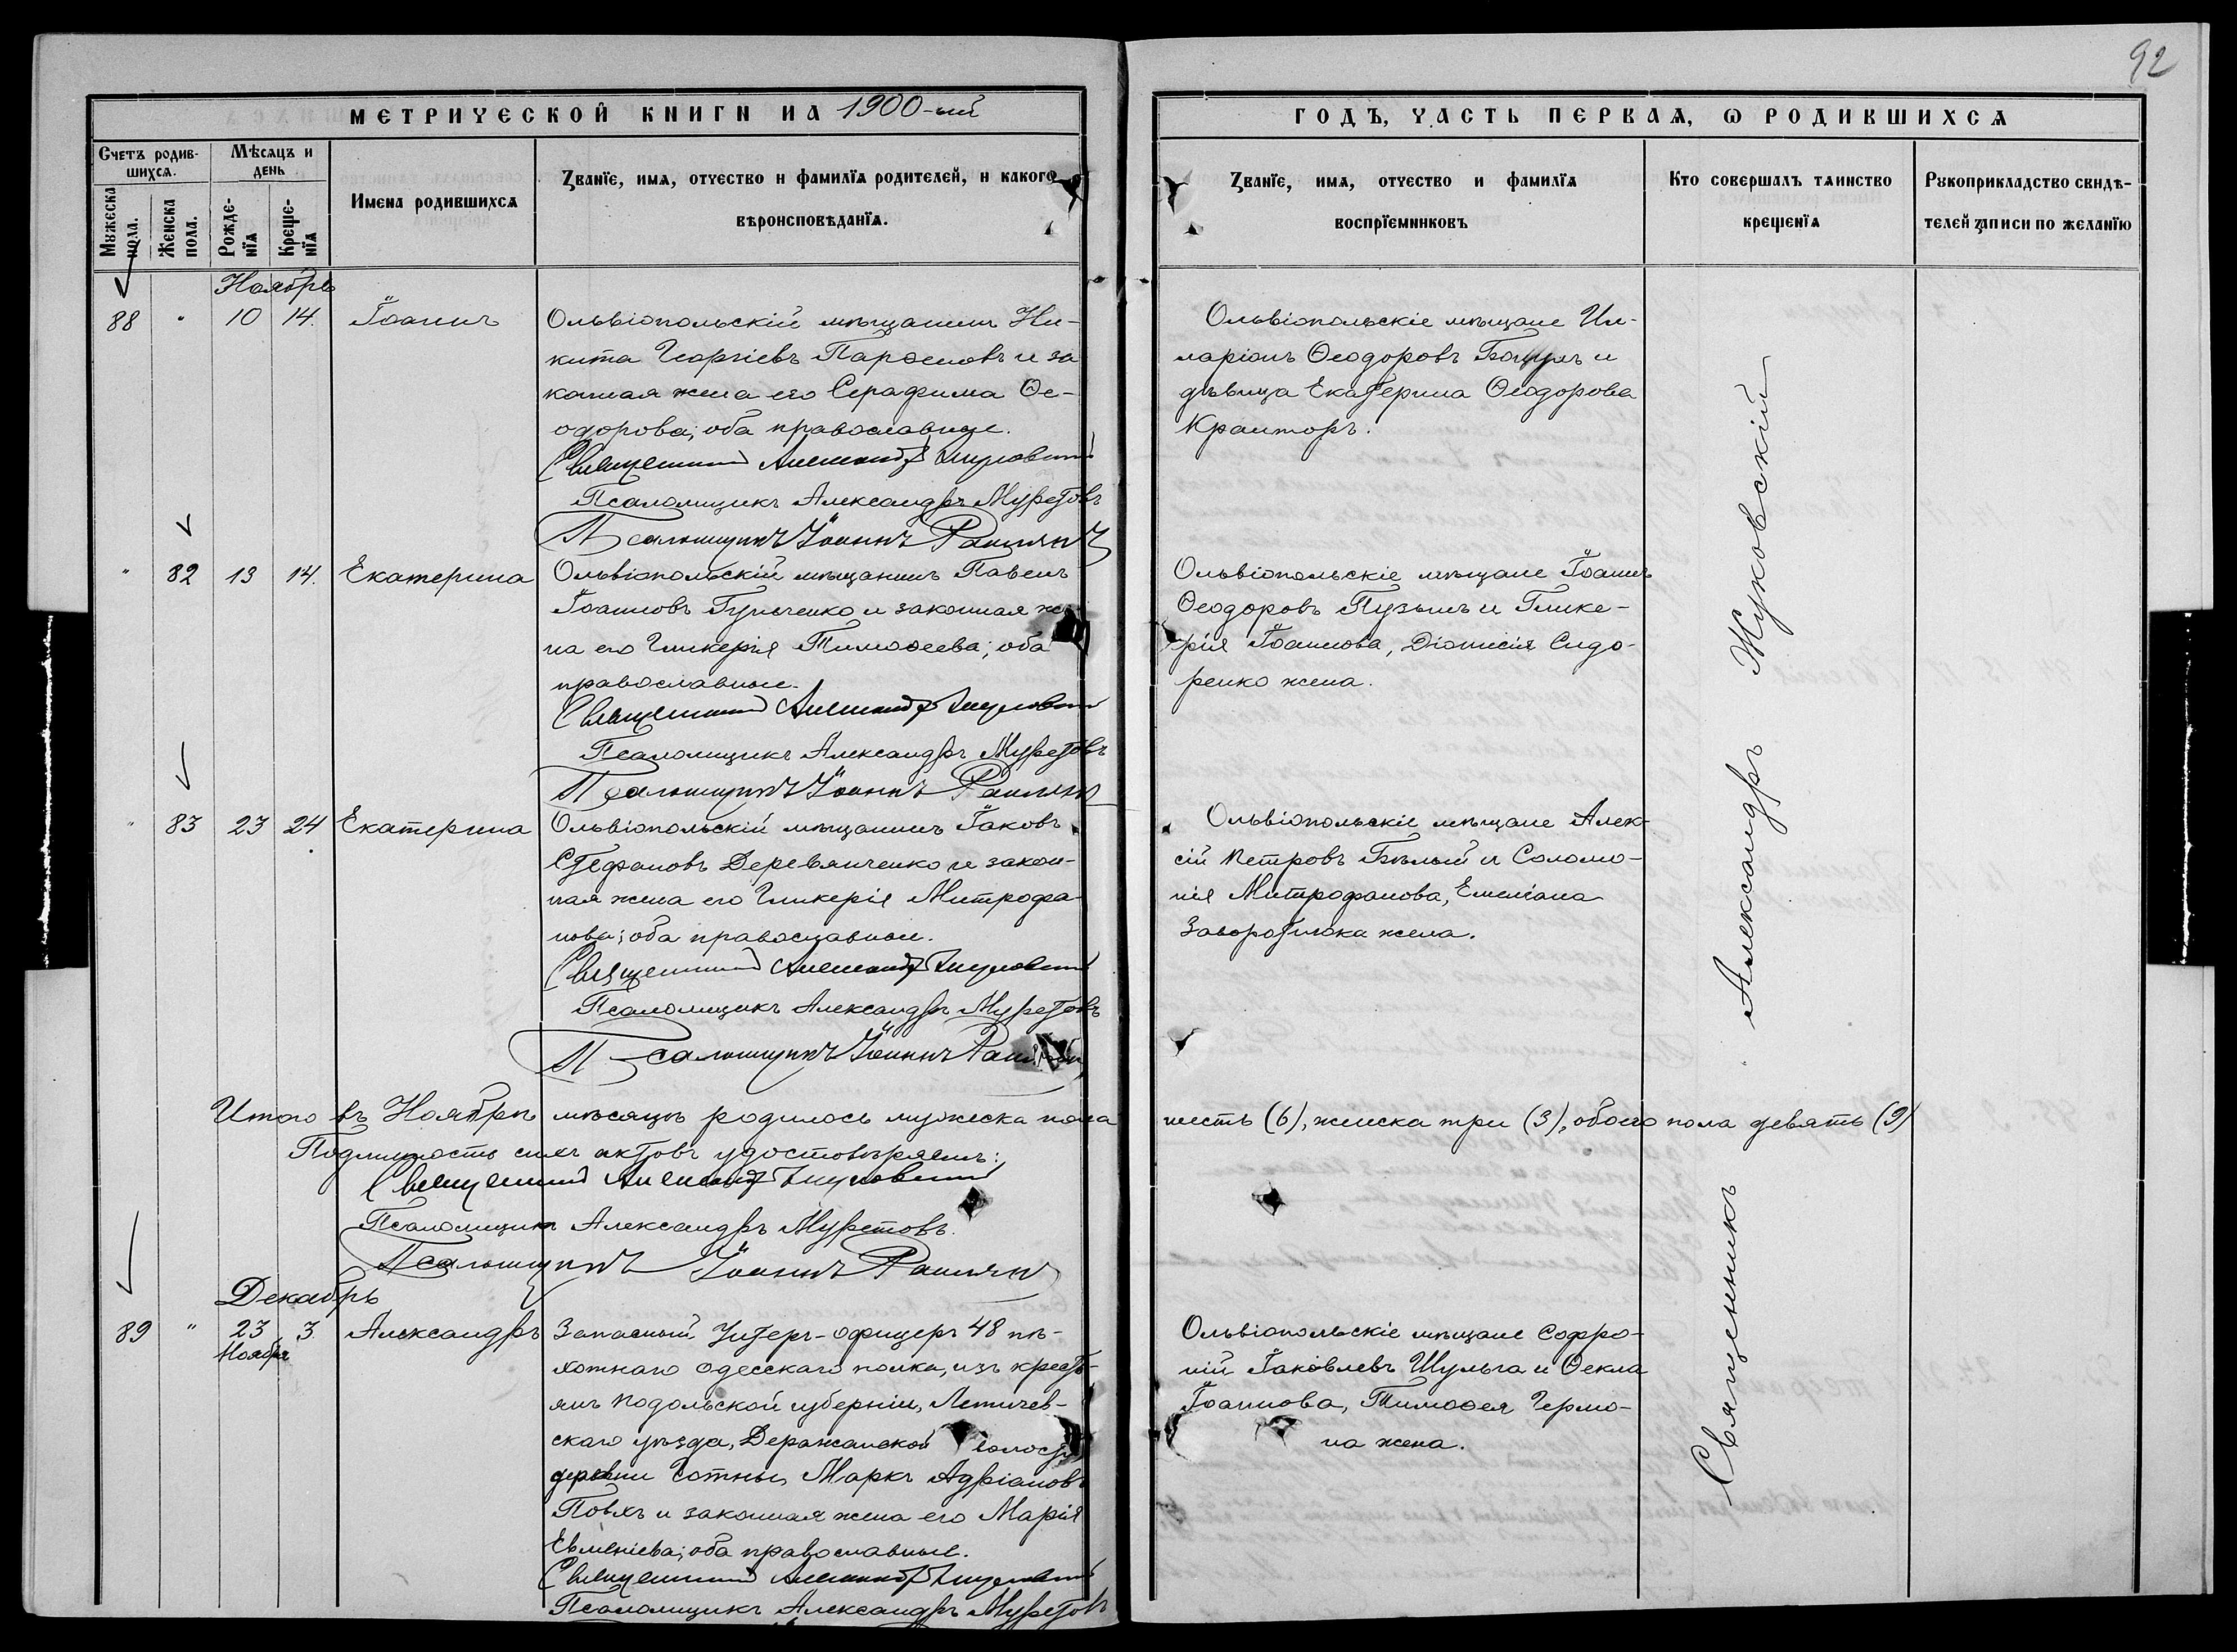 92
МЕТРИЧЕСКОЙ КНИГИ НА 1900-ый
ГОДЪ, ЧАСТЬ ПЕРВАЯ, Ѡ РОДИВШИХСѦ
Счетъ родив-
шихсѧ.
Мѣсѧцъ и
день
Мужеска
пола.
Женска
пола.
Рожде-
нїѧ
Креще-
нїѧ
Имена родившихсѧ
Званїе, имѧ, отчество и фамилїѧ родителей, и какого
вѣроисповѣданїѧ.
Званїе, имѧ, отчество и фамилїѧ
воспрїемниковъ
Кто совершалъ таинство
крещенїѧ
Рукоприкладство свидѣ-
телей записи по желанїю
Ноябрь
88 " 10 14. Іоаннъ
Ольвіопольскій мѣщанинъ Ни-
кита Георгіевъ Парѳеновъ и за
конная жена его Серафима Ѳе-
одорова; оба православные.
Священникъ Александръ Жуковскій
Псаломщикъ Александръ Муретовъ
Псаломщикъ Іоаннъ
Ольвіопольскіе мѣщане Ил-
ларіонъ Ѳеодоровъ Боцулъ и
дѣвица Екатерина Ѳеодорова
Крамторъ.
" 82 13 14. Екатерина
Ольвіопольскій мѣщанинъ Павелъ
Іоанновъ Гульченко и законная же-
на его Гликерія Тимоѳеева; оба
православные.
Священникъ Александръ Жуковскій
Псаломщикъ Александръ Муретовъ
Псаломщикъ Іоаннъ
Ольвіопольскіе мѣщане Іоаннъ
Ѳеодоровъ Пузынъ и Глике-
рія Іоаннова, Діонисія Сидо-
ренко жена.
" 83 23 24 Екатерина
Ольвіопольскій мѣщанинъ Іаковъ
Стефановъ Деревянченко и закон-
ная жена его Гликерія Митрофа
нова; оба православные.
Священникъ Александръ Жуковскій
Псаломщикъ Александръ Муретовъ
Псаломщикъ Іоаннъ
Ольвіопольскіе мѣщане Алек-
сій Петровъ Бѣлый и Соломо-
нія Митрофанова, Емеліана
Заворотнюка жена.
Итого въ Ноябрѣ мѣсяцѣ родилось мужеска пола шесть (6), женска три (3), обоего пола девять (9)
Подлинность сихъ актовъ удостовѣряемъ:
Священникъ Александръ Жуковскій
Псаломщикъ Александръ Муретовъ.
Псаломщикъ Іоаннъ
Декабрь
89 " 23 3 Александръ
Ноября
Запасный Унтеръ-офицеръ 48 пѣ-
хотнаго Одесскаго полка, изъ кресть-
янъ Подольской губерніи, Летичев-
скаго уѣзда, Деражнянской волости
деревни Сотны, Маркъ Адріановъ
Повхъ и законная жена его Марія
Евменіева; оба православные.
Священникъ Александръ Жуковскій
Псаломщикъ Александръ Муретовъ
Ольвіопольскіе мѣщане Софро-
ній Іаковлевъ Шульга и Ѳекла
Іоаннова, Тимоѳея Чермо-
на жена.
Священникъ Александръ Жуковскій